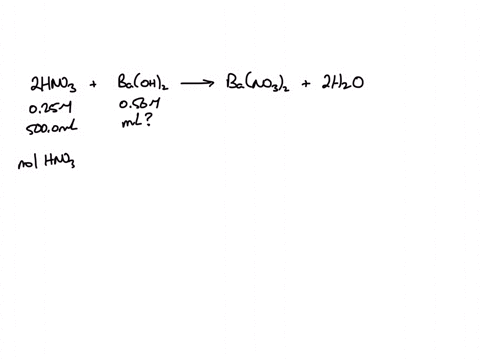 2HNO₃ + Ba(OH)₂ → Ba(NO₃)₂ + 2H₂O
0.25M 0.50M
500.0mL mL?
mol HNO₃